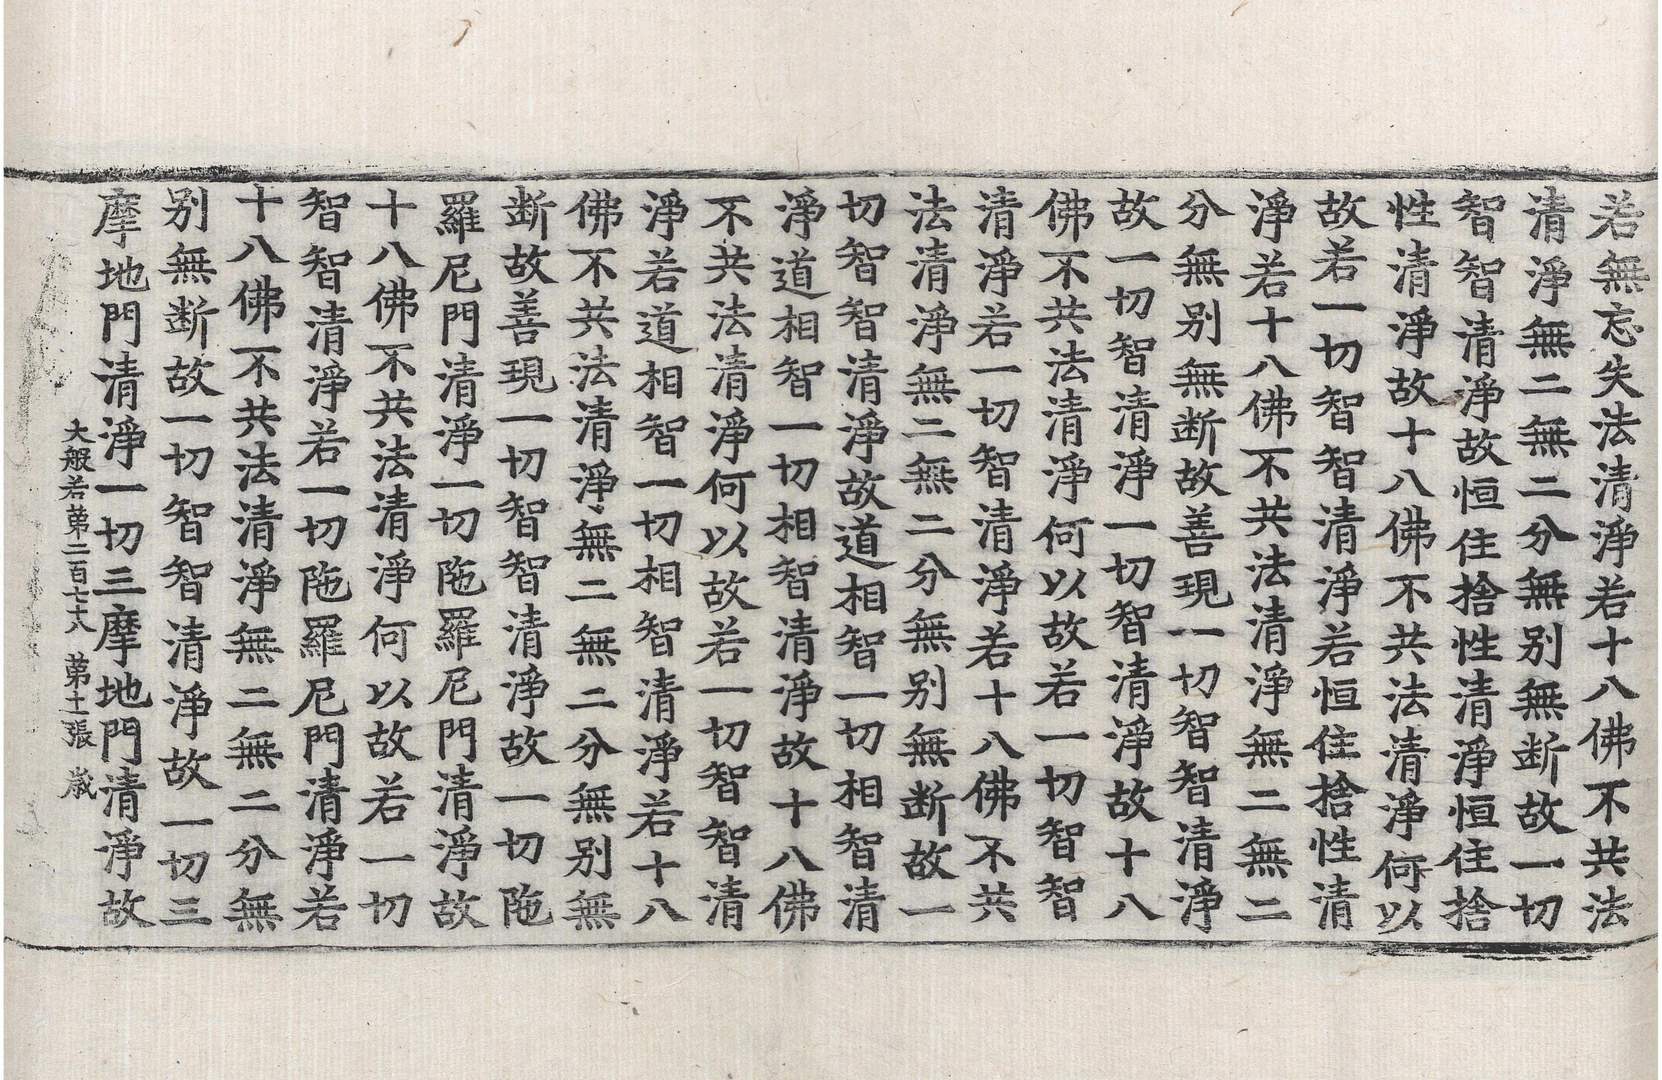 若無忘失法清淨若十八佛不共法
清淨無二無二分無别無断故一切
智智清淨故恒住捨性清淨恒住捨
性清淨故十八佛不共法清淨何以
故若一切智智清淨若恒住捨性清
淨若十八佛不共法清淨無二無二
分無别無断故善現一切智智清淨
故一切智清淨一切智清淨故十八
佛不共法清淨何以故若一切智智
清淨若一切智清淨若十八佛不共
法清淨無二無二分無别無断故一
切智智清淨故道相智一切相智清
淨道相智一切相智清淨故十八佛
不共法清淨何以故若一切智智清
淨若道相智一切相智清淨若十八
佛不共法清淨無二無二分無别無
断故善現一切智智清淨故一切陁
羅尼門清淨一切陁羅尼門清淨故
十八佛不共法清淨何以故若一切
智智清淨若一切陁羅尼門清淨若
十八佛不共法清淨無二無二分無
别無断故一切智智清淨故一切三
摩地門清淨一切三摩地門清淨故
大般若苐二百七十八 苐十一張 歲